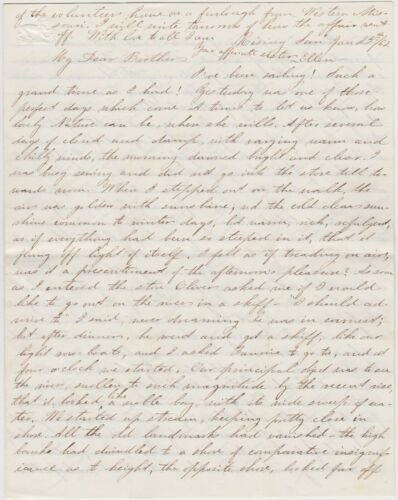 of the volunteers, home on a furlough from Western Mis-
souri. I will write you soon & how the affair went
off. With love to all I am
Your affnate sister Ellen
Quincy Sun Jan 25th/62
My Dear Brother
I've been sailing! Such a
grand time as I had! Yesterday was one of those
perfect days, which come at times to let us know, how
lovely Nature can be, when she wills. After several
days of cloud and damp, with varying warm and
chilly winds, the morning dawned bright and clear. I
was busy sewing and did not go into the store till to-
wards noon. When I stepped out on the walk, the
air was golden with sunshine, not the cold clear sun-
shine common to winter days, but warm, rich, refulgent,
as if everything had been so steeped in it, that it
flung off light of itself. I felt as if treading on air;
was it a presentiment of the afternoon's pleasure? As soon
as I entered the store Oliver asked me if I would
like to go out on the river in a skiff - "I should ad-
mire to" I said, never dreaming he was in earnest;
but after dinner, he went and got a skiff, like our
light row boats, and I asked to go, and at
four o'clock we started. Our principal object was to see
the river, swollen to such magnitude by the recent rise,
that it looked like quite bay, with its wide sweep of wa-
ter. We started up stream, keeping pretty close in
shore. All the old landmarks had vanished - the high
banks had dwindled to a shore of comparative insignif-
icance as to height, the opposite shore, looked far off